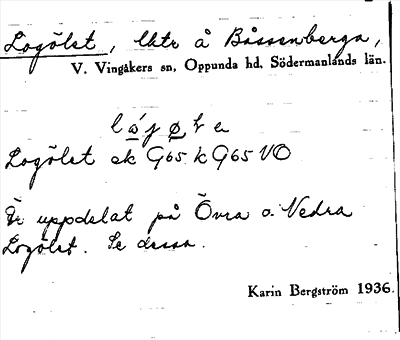 Logölet, lhtr å Båsenberga,
V. Vingåkers sn, Oppunda hd, Södermanlands län.
Logölet ek G65 k G65 VO
Är uppdelat på Övra o. Nedra
Logölet. Se dessa.
Karin Bergström 1936.